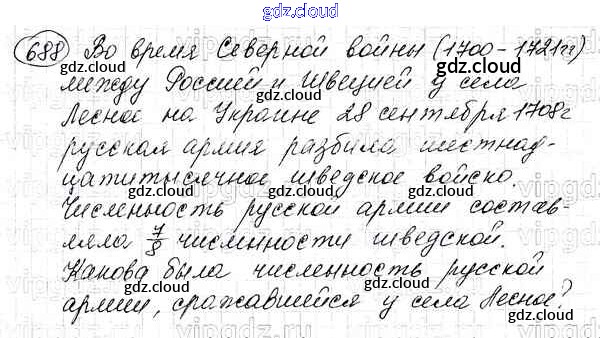 gdz.cloud
688 Во время Северной войны (1700-1721гг)
gdz.cloud gdz.cloud
между Россией и Швецией у села
gdz.cloud
Лесное на Украине 28 сентября 1708г
gdz.cloud
русская армия разбила шестнад-
цатитысячное шведское войско.
gdz.cloud gdz.cloud
Численность русской армии состав-
gdz.cloud
ляла 7/9 численности шведской.
gdz.cloud gdz.cloud
Какова была численность русской
армии, сражавшейся у села Лесное?
gdz.cloud gdz.cloud